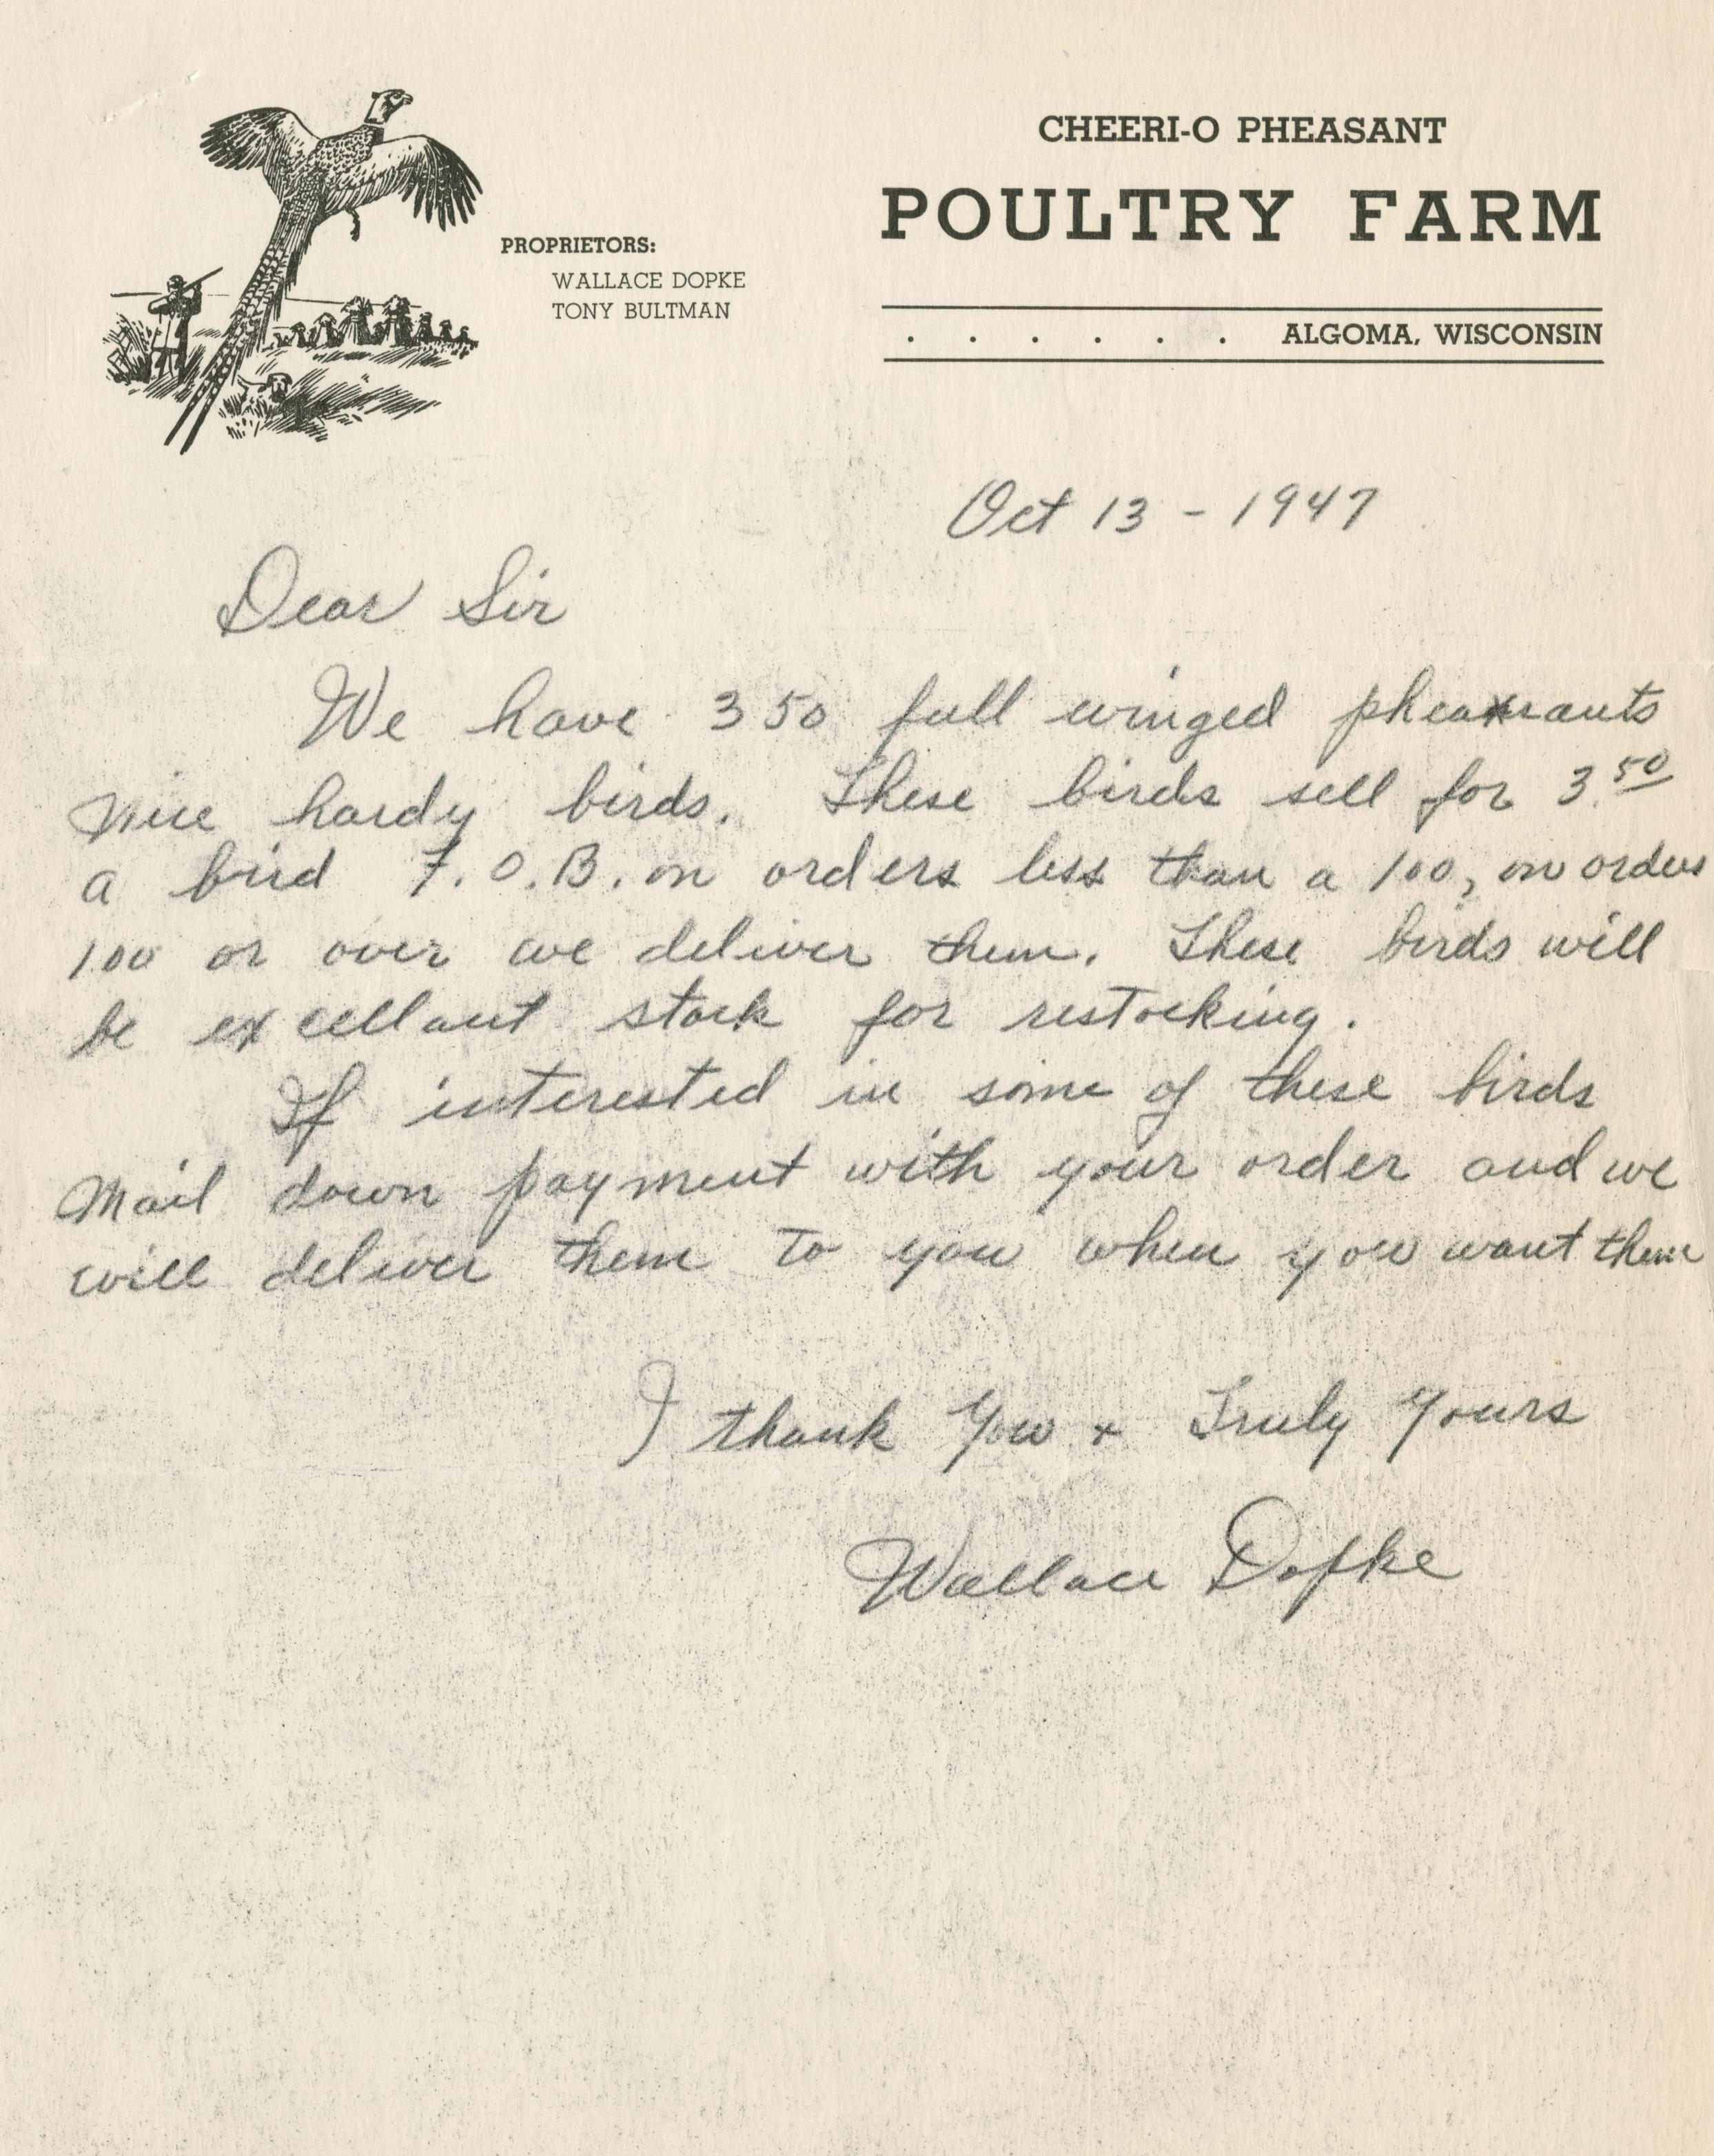 CHEERI-O PHEASANT
POULTRY FARM
PROPRIETORS:
WALLACE DOPKE
TONY BULTMAN
. . . . . . ALGOMA, WISCONSIN
Oct 13 - 1947
Dear Sir
We have 350 full winged pheasants
nice hardy birds. These birds sell for 3.50
a bird F.O.B. on orders less than a 100, on orders
100 or over we deliver them. These birds will
be excellant stock for restocking.
If interested in some of these birds
Mail down payment with your order and we
will deliver them to you when you want them
I thank You + Truly Yours
Wallace Dopke